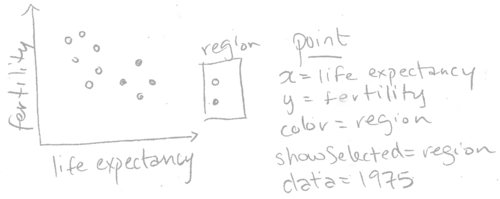 fertility
life expectancy
region
point
x=life expectancy
y=fertility
color=region
showSelected=region
data=1975